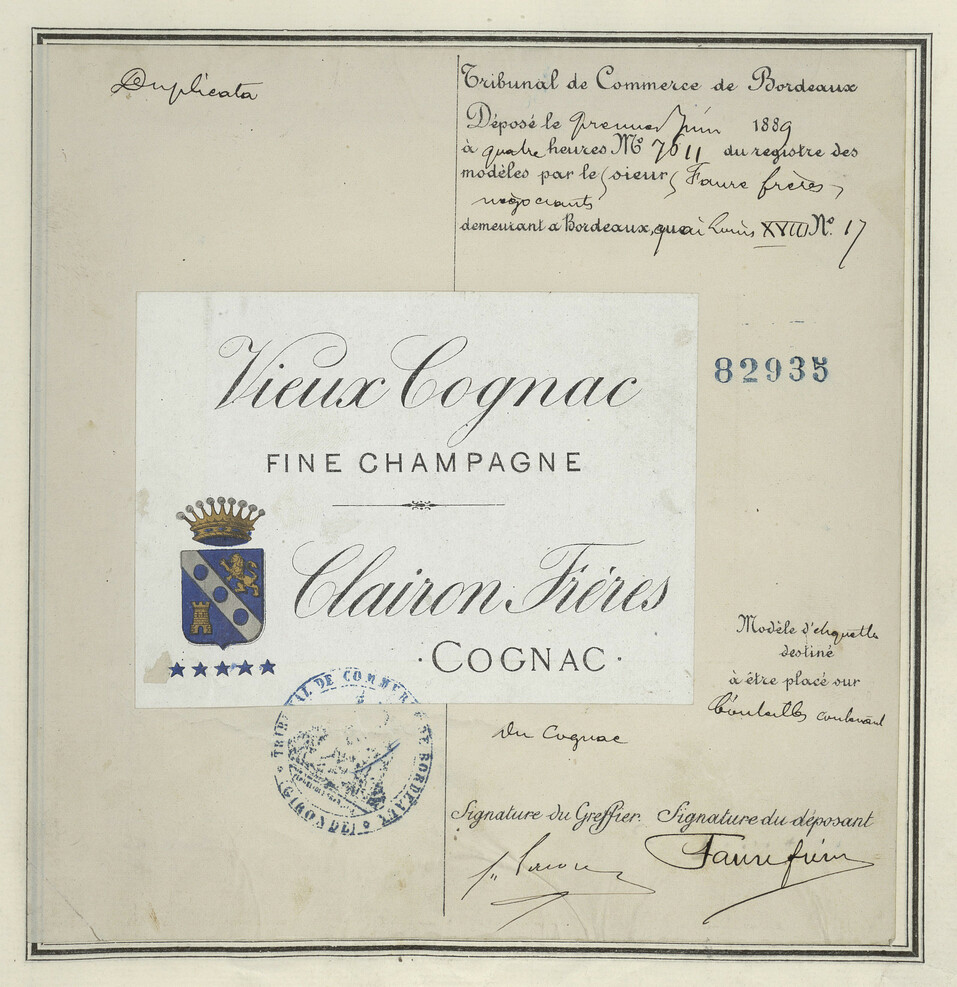 Duplicata
Tribunal de Commerce de Bordeaux
Déposé le premier Juin 1889
à quatre heures No 7611 du registre des
modèles par le sieur Faure frères,
négociants
demeurant à Bordeaux, quai Louis XVIII No. 17
82935
Vieux Cognac
FINE CHAMPAGNE
Clairon Frères
·COGNAC·
Modèle d'etiquette
destiné
à être placé sur
bouteilles contenant
du Cognac
TRIBUNAL DE COMMERCE DE BORDEAUX
(GIRONDE)
Signature du Greffier. Signature du déposant
Faure frères